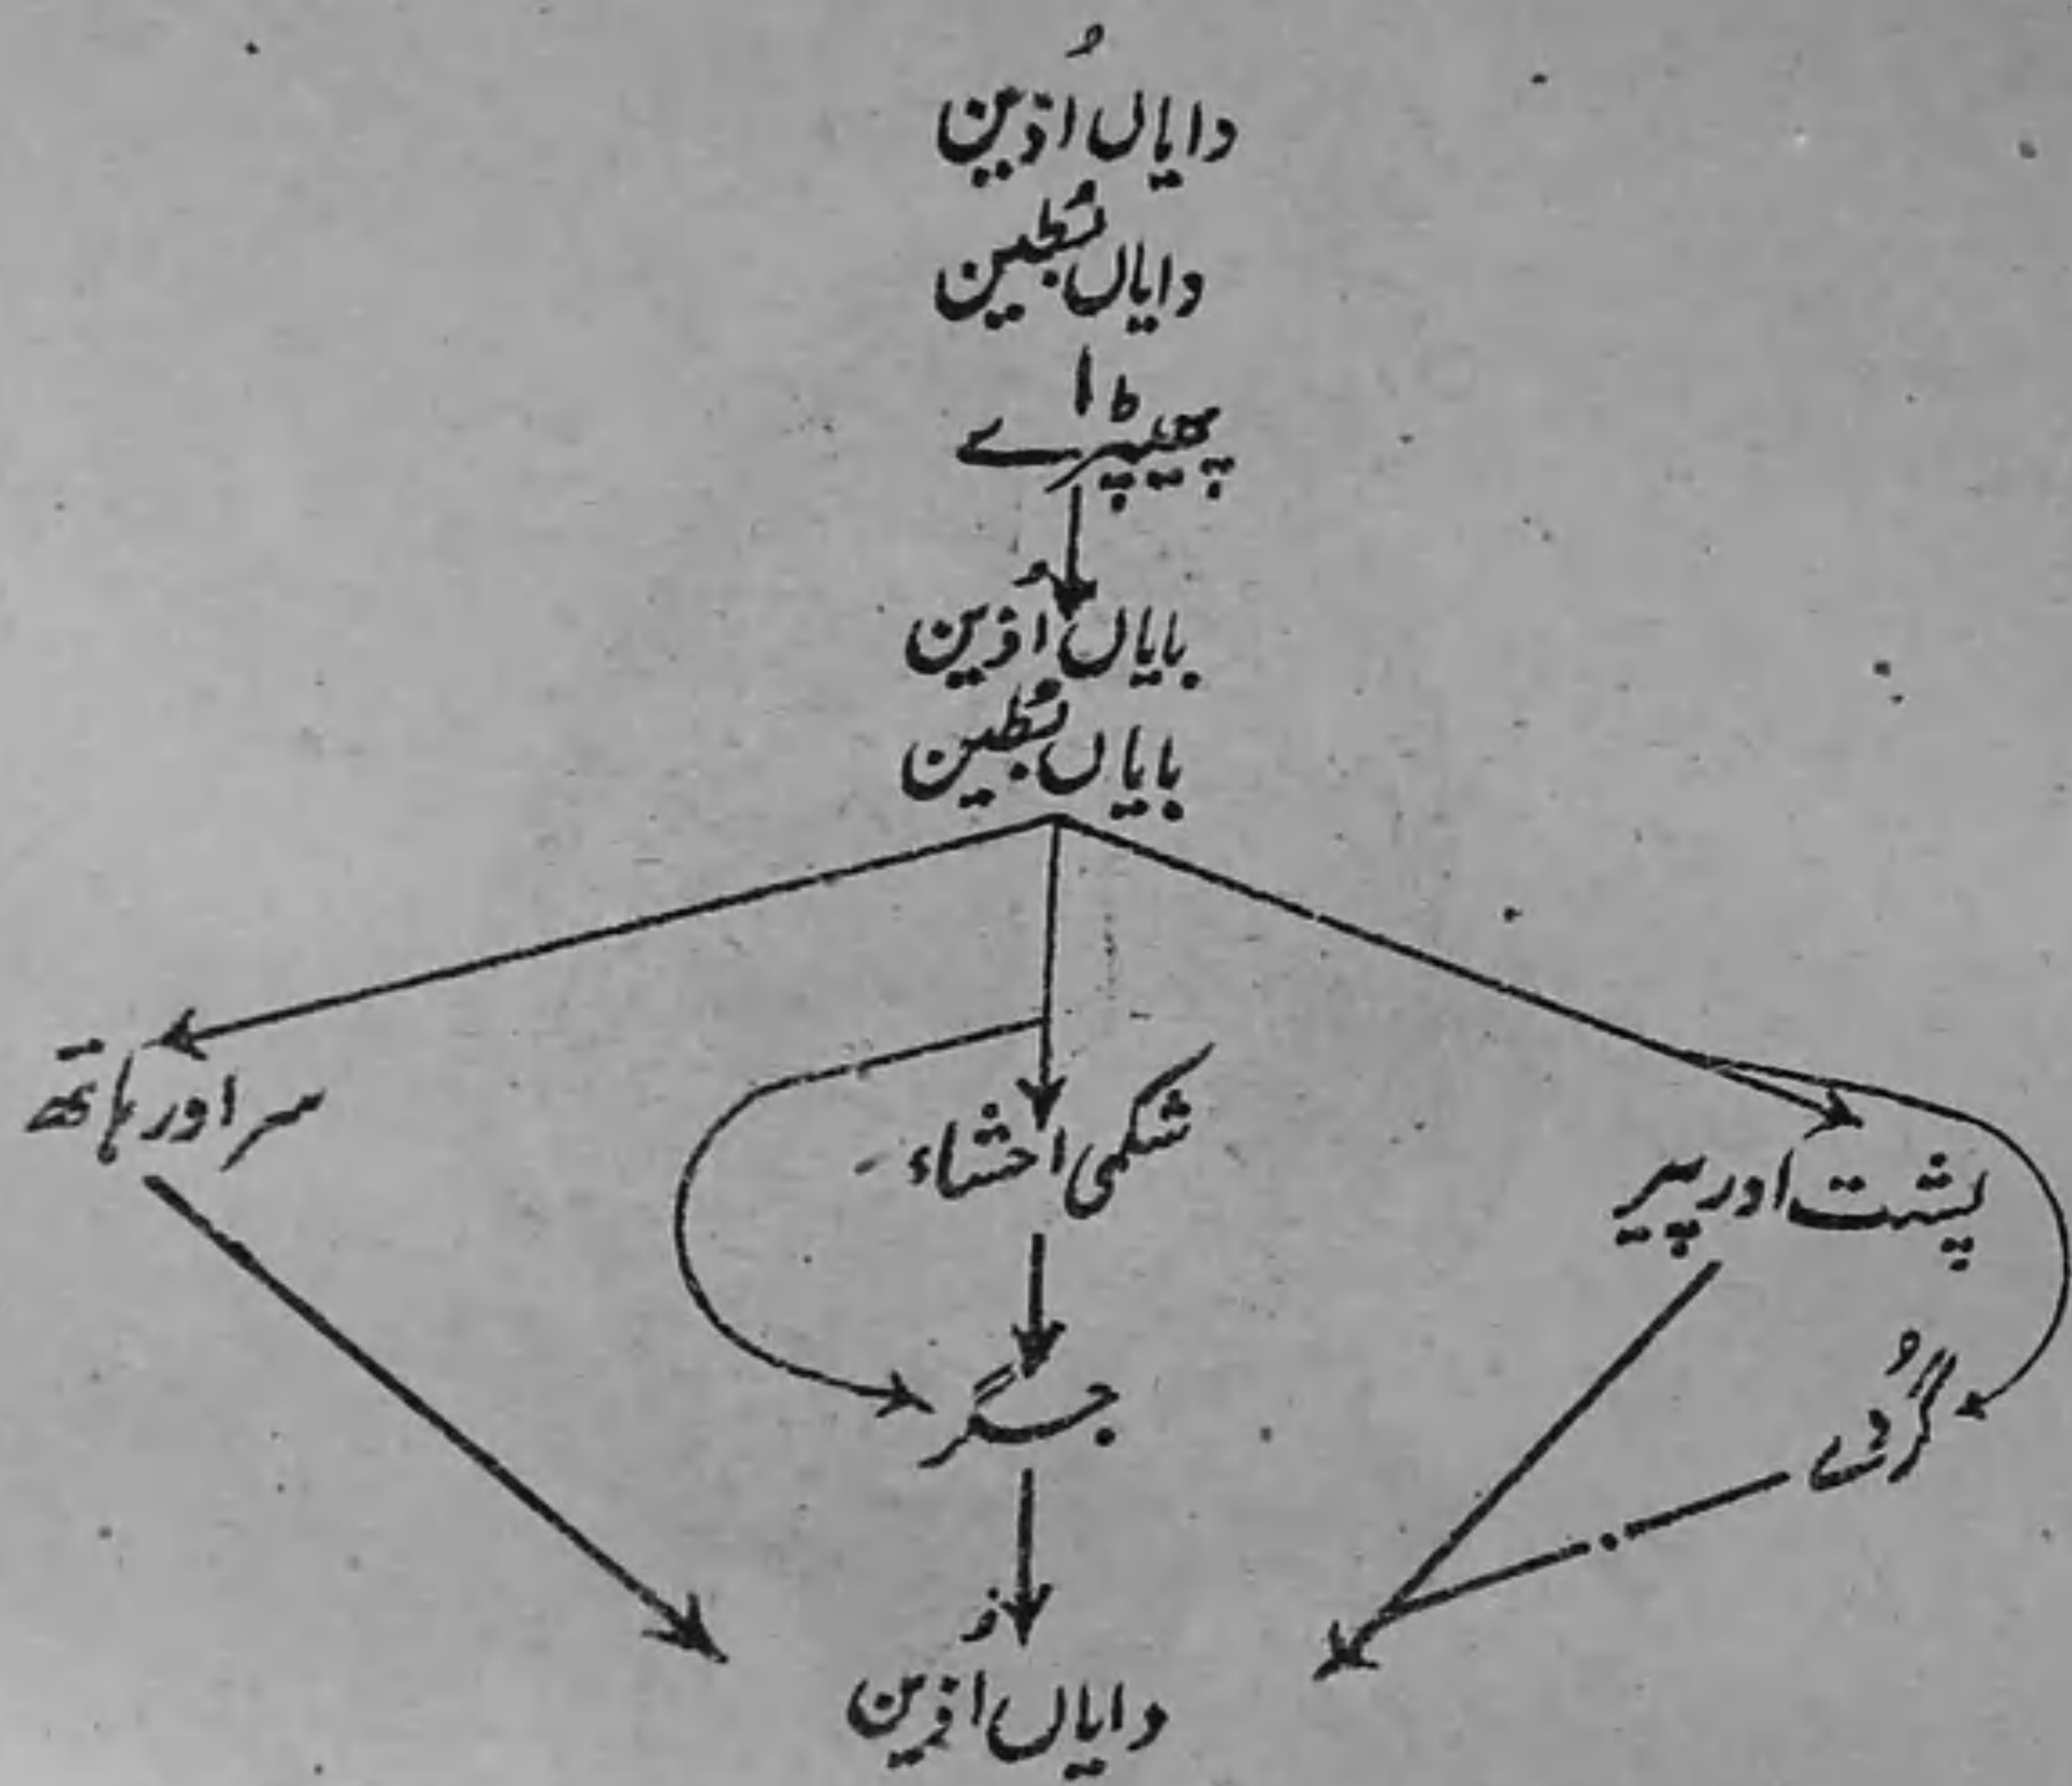 دایاں اُذین
دایاں بُطین
پھیپڑے
بایاں اُذین
بایاں بُطین
سر اور ہاتھ
شکمی احشاء
پشت اور پیر
جگر
گُردے
دایاں اذین